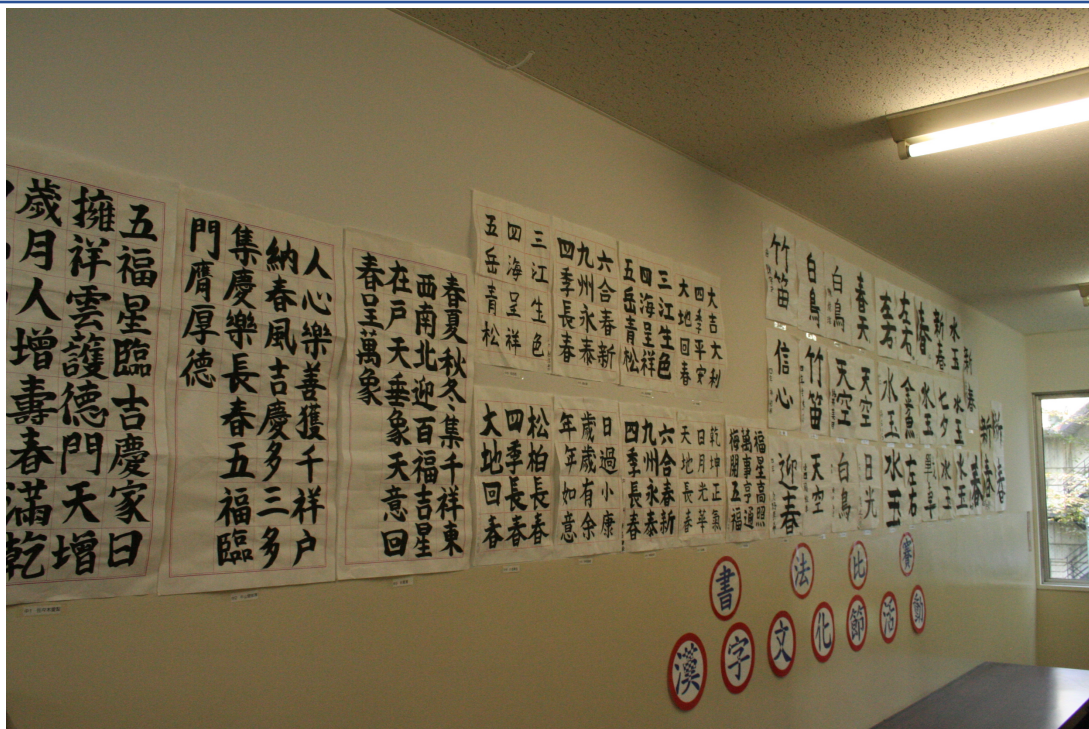 五福星臨吉慶家日
擁祥雲護德門天增
歲月人增壽春滿乾
人心樂善獲千祥户
納春風吉慶多三多
集慶樂長春五福臨
門膺厚德
春夏秋冬集千祥東
西南北迎百福吉星
在户天垂象天意回
春呈萬象
三江生色
四海呈祥
五岳青松
六合春新
九州永泰
四季長春
三江生色
四海呈祥
五岳青松
大吉大利
四季平安
大地回春
松柏長春
四季長春
大地回春
日過小康
歲歲有余
年年如意
六合春新
九州永泰
四季長春
乾坤正氣
日月光華
天地長春
福星高照
萬事亨通
梅開五福
竹笛
白鳥
白鳥
春天
春
新春
水玉
新春
信心
竹笛
天空
天空
水玉
金魚
水玉
七夕
水玉
迎春
天空
白鳥
日光
水玉
左右
水玉
水玉
春
新春
新春
書法比賽
漢字文化節活動